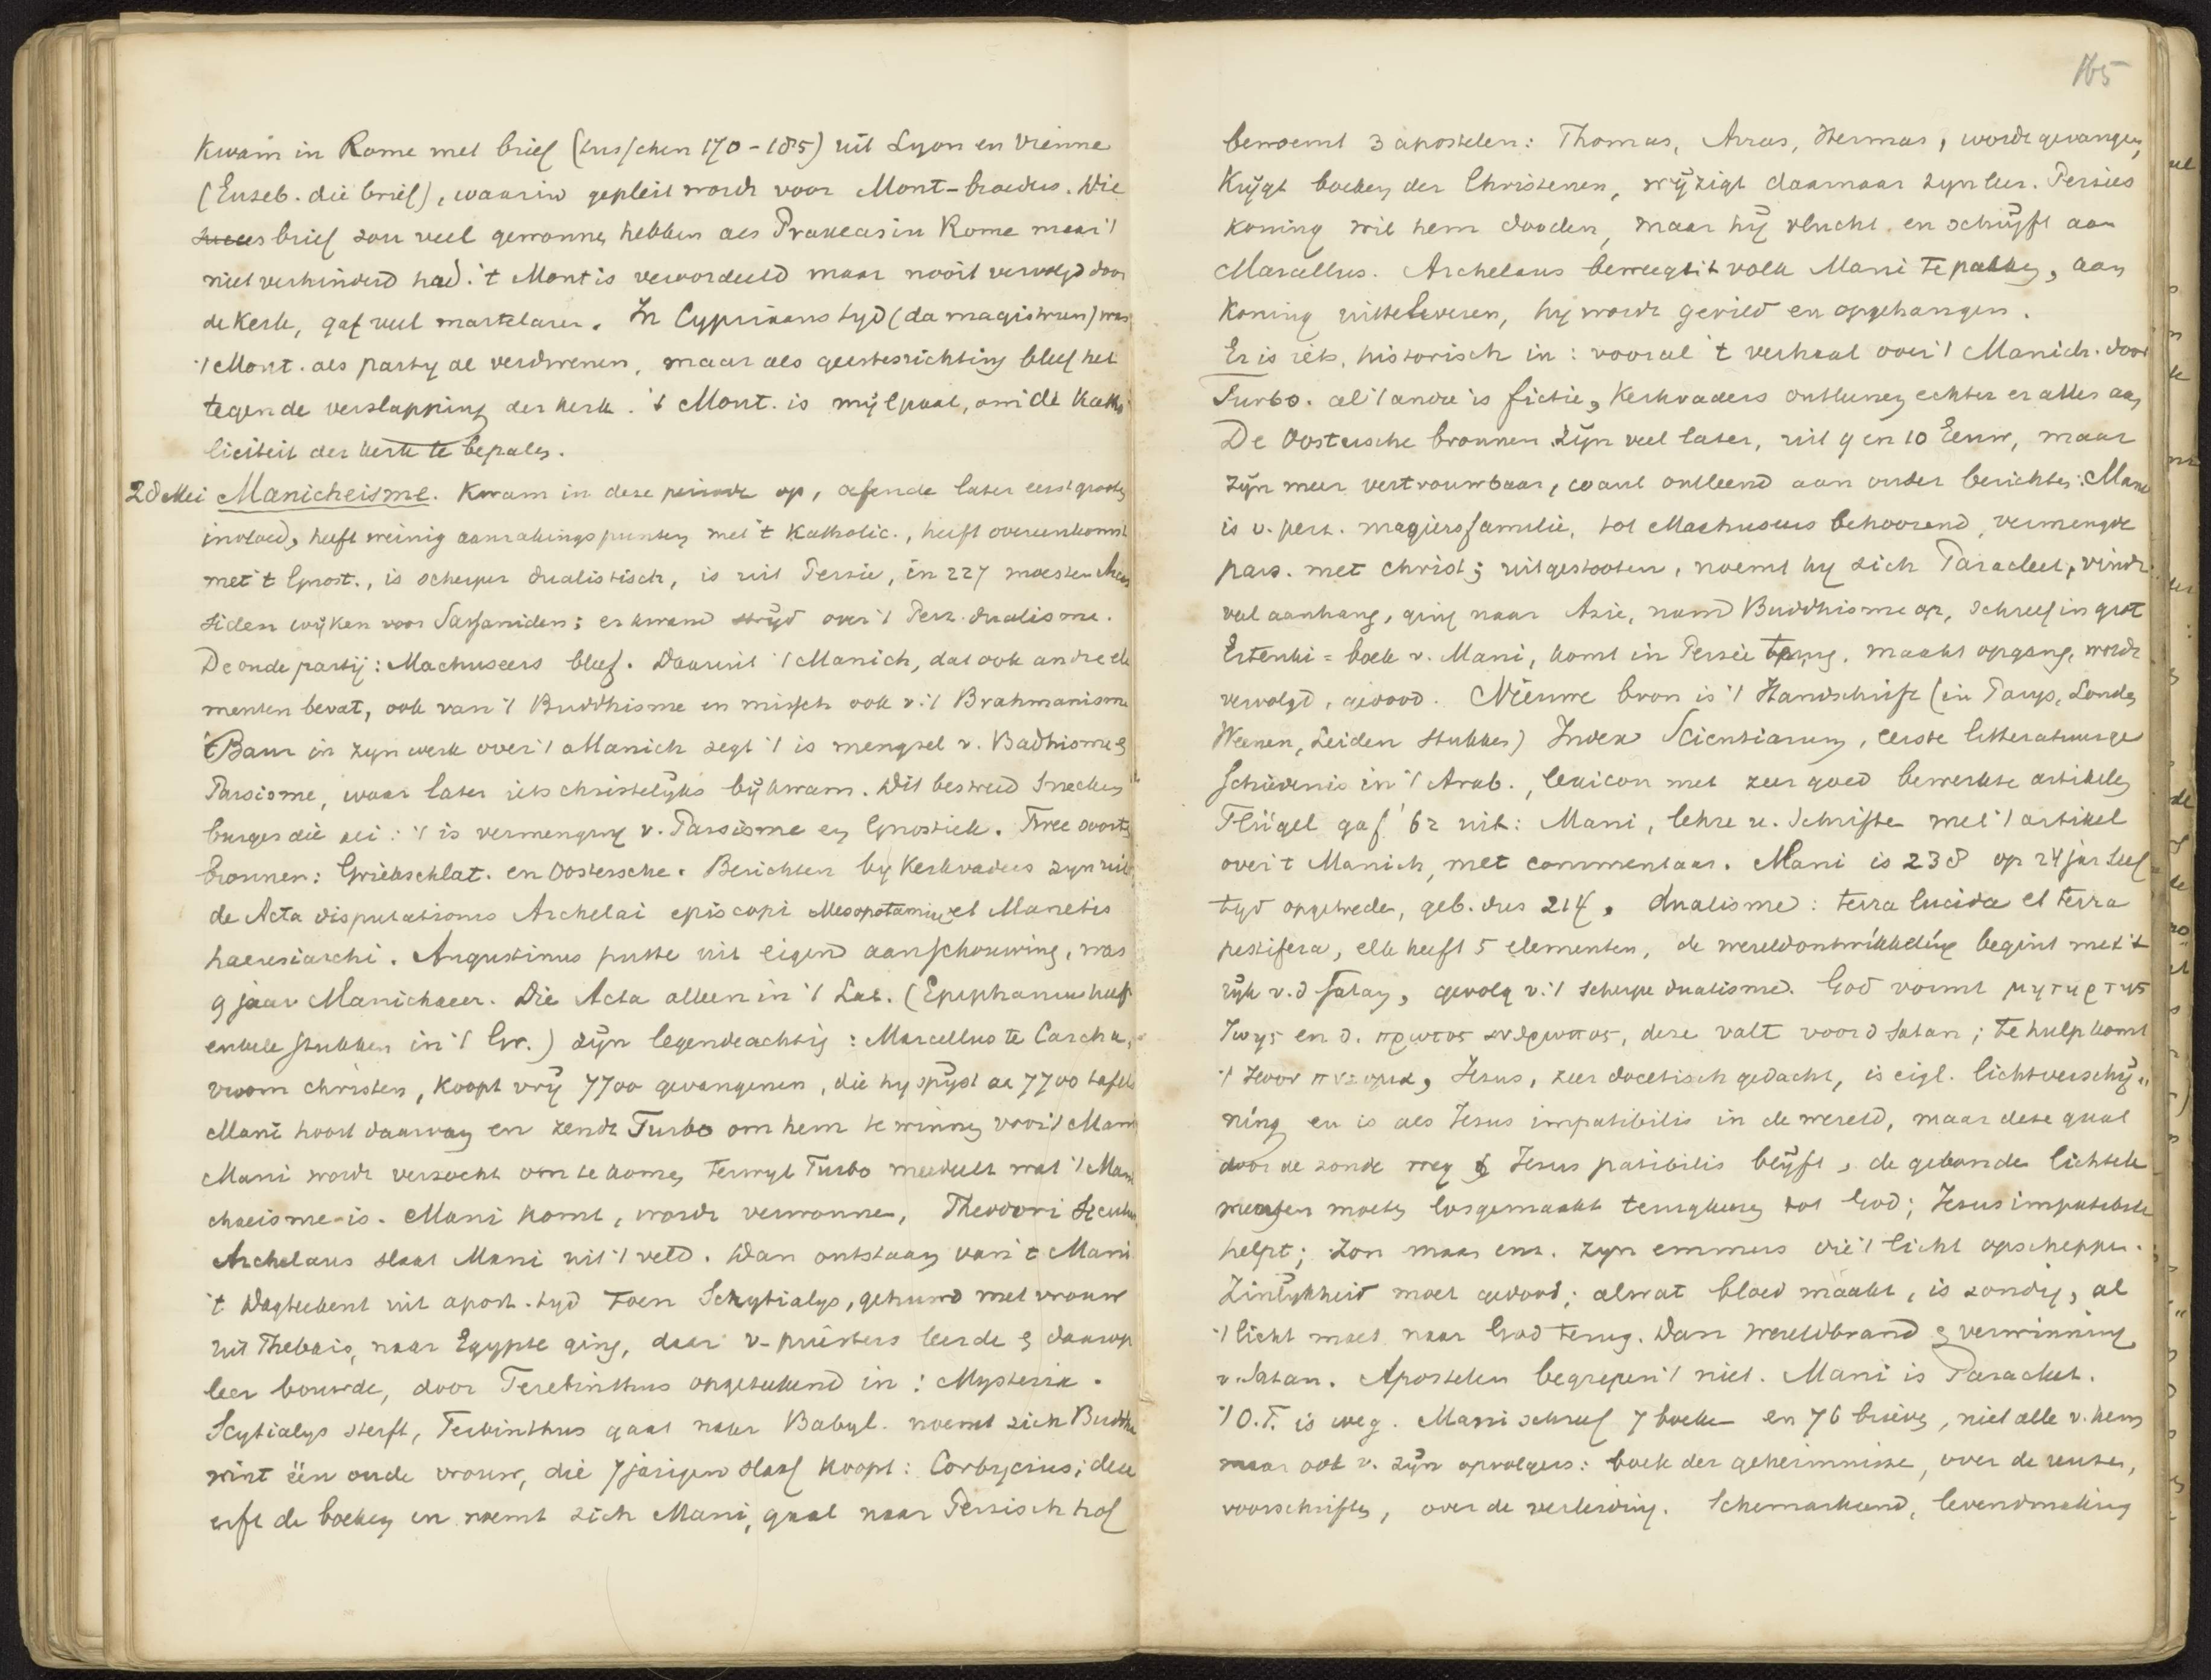 kwam in Rome met brief (tusschen 170-185) uit Lyon en Vienne
(Euseb. die brief), waarin gepleit wordt voor Mont-broeders. Die
brief zou veel gewonnen hebben als Praxeas in Rome maar 't
niet verhinderd had. 't Mont is veroordeeld maar nooit vervolgd door
de kerk, gaf veel martelaren. In Cyprianus tyd (da magistrum) was
't Mont. als party al verdwenen, maar als geestesrichting bleef het
tegen de verslapping der kerk. 't Mont. is mijlpaal, om de Katho
liciteit der kerk te bepalen.
28 Mei Manicheisme. Kwam in deze periode op, oefende later eerst grooten
invloed, heeft weinig aanrakingspunten met 't Katholic., heeft overeenkomst
met 't Gnost., is scherper dualistisch, is uit Perzie, in 227 moesten Arsa
siden wijken voor Sassaniden; er kwam strijd over 't Perz. dualisme.
De oude partij: Machuseers bleef. Daaruit 't Manich, dat ook andre ele
menten bevat, ook van 't Buddhisme en missch ook v. 't Brahmanisme
Baur in zyn werk over 't Manich zegt 't is mengsel v. Badhisme &
Parsisme, waar later iets christelyks bijkwam. Dit bestreed Snecken
burger die zei: 't is vermenging v. Parsisme en Gnostiek. Twee soorten
bronnen: Grieksch lat. en Oostersche. Berichten by Kerkvaders zyn uit
de Acta disputationis Archelai episcopi Mesopotamiae et Manetis
haeresiarchi. Augustinus putte uit eigen aanschouwing, was
9 jaar Manichaeer. Die Acta alleen in 't Lat. (Epiphanius heeft
enkele stukken in 't Gr.) zijn legendeachtig: Marcellus te Carcha,
vroom christen, koopt vrij 7700 gevangenen, die hy spijst aa 7700 tafels
Mani hoort daarvan en zendt Turbo om hem te winnen voor 't Mani
Mani wordt verzocht om te komen, terwyl Turbo meedeelt wat 't Mani
chaeisme is. Mani komt, wordt verwonnen,
Archelaus slaat Mani uit 't veld. Dan ontstaan van 't Mani
't Dagteekent uit apost. tyd toen Schytialys, gehuwd met vrouw
uit Thebais, naar Egypte ging, daar v- priesters leerde & daarop
leer bouwde, door Terebinthus opgeteekend in: Mysteria.
Scytialys sterft, Terbinthus gaat naar Babyl. noemt zich Buddha
wint één oude vrouw, die 7 jarigen slaaf koopt: Corbycius; deze
erft de boeken en noemt zich Mani, gaat naar Perzisch hof
165
benoemt 3 apostelen: Thomas, Arras, Hermas, wordt gevangen,
Krijgt boeken der Christenen, wijzigt daarnaar zyn leer. Perzies
koning wil hem dooden, maar hij vlucht en schrijft aan
Marcellus. Archelaus beweegt 't volk Mani te pakken, aan
koning uitteleveren, hy wordt gevild en opgehangen.
Er is iets historisch in: vooral 't verhaal over 't Manich. door
Turbo. al 't andre is fictie, Kerkvaders ontleenen echter er alles aan
De Oostersche bronnen zijn veel later, uit 9 en 10 Eeuw, maar
zijn meer vertrouwbaar, want ontleend aan ouder berichten: Mani
is v. perz. magiersfamilie, tot Machuseers behoorend, vermengde
pars. met christ; uitgestooten, noemt hy zich Paracleet, vindt
veel aanhang, ging naar Azie, nam Buddhisme op, schreef in grot
Ertenki = boek v. Mani, komt in Perzie terug, maakt opgang, wordt
vervolgd, gedood. Nieuwe bron is 't Handschrift (in Parys, Londen,
Weenen, Leiden stukken) Index Scientiarum, eerste litteratuurge
schiedenis in 't Arab., lexicon met zeer goed bewerkte artikelen
Flügel gaf '62 uit: Mani, lehre u. Schriften met 't artikel
over 't Manich, met commentaar. Mani is 238 op 24 jar leef
tyd opgetreden, geb. dus 214. dualisme: terra lucida et terra
pestifera, elk heeft 5 elementen, de wereldontwikkeling begint met 't
rijk v. d Satan, gevolg v. 't scherpe dualisme. God vormt μητηρ της
ζωης en d. πρωτος ανθρωπος, deze valt voor d Satan; te hulp komt
't ζωον πνευμα, Jezus, zeer docetisch gedacht, is eigl. lichtverschij„
ning en is als Jesus impatibilis in de wereld, maar deze gaat
door de zonde weg & Jesus patibilis blijft, de gebonden lichtele
menten moeten losgemaakt terugkeeren tot God; Jesus impatibilis
helpt; zon maan enz. zyn emmers die 't licht opscheppen.
Zinlijkheid moet gedood; alwat bloed maakt, is zondig, al
't licht moet naar God terug. Dan wereldbrand & verwinning
v. Satan. Apostelen begrepen 't niet. Mani is Paracleet.
't O.T. is weg. Mani schreef 7 boeken en 76 brieven, niet alle v. hem
maar ook v. zijn opvolgers: boek der geheimnisse, over de reuzen,
voorschriften, over de verleiding. Schemarkand, levendmaking